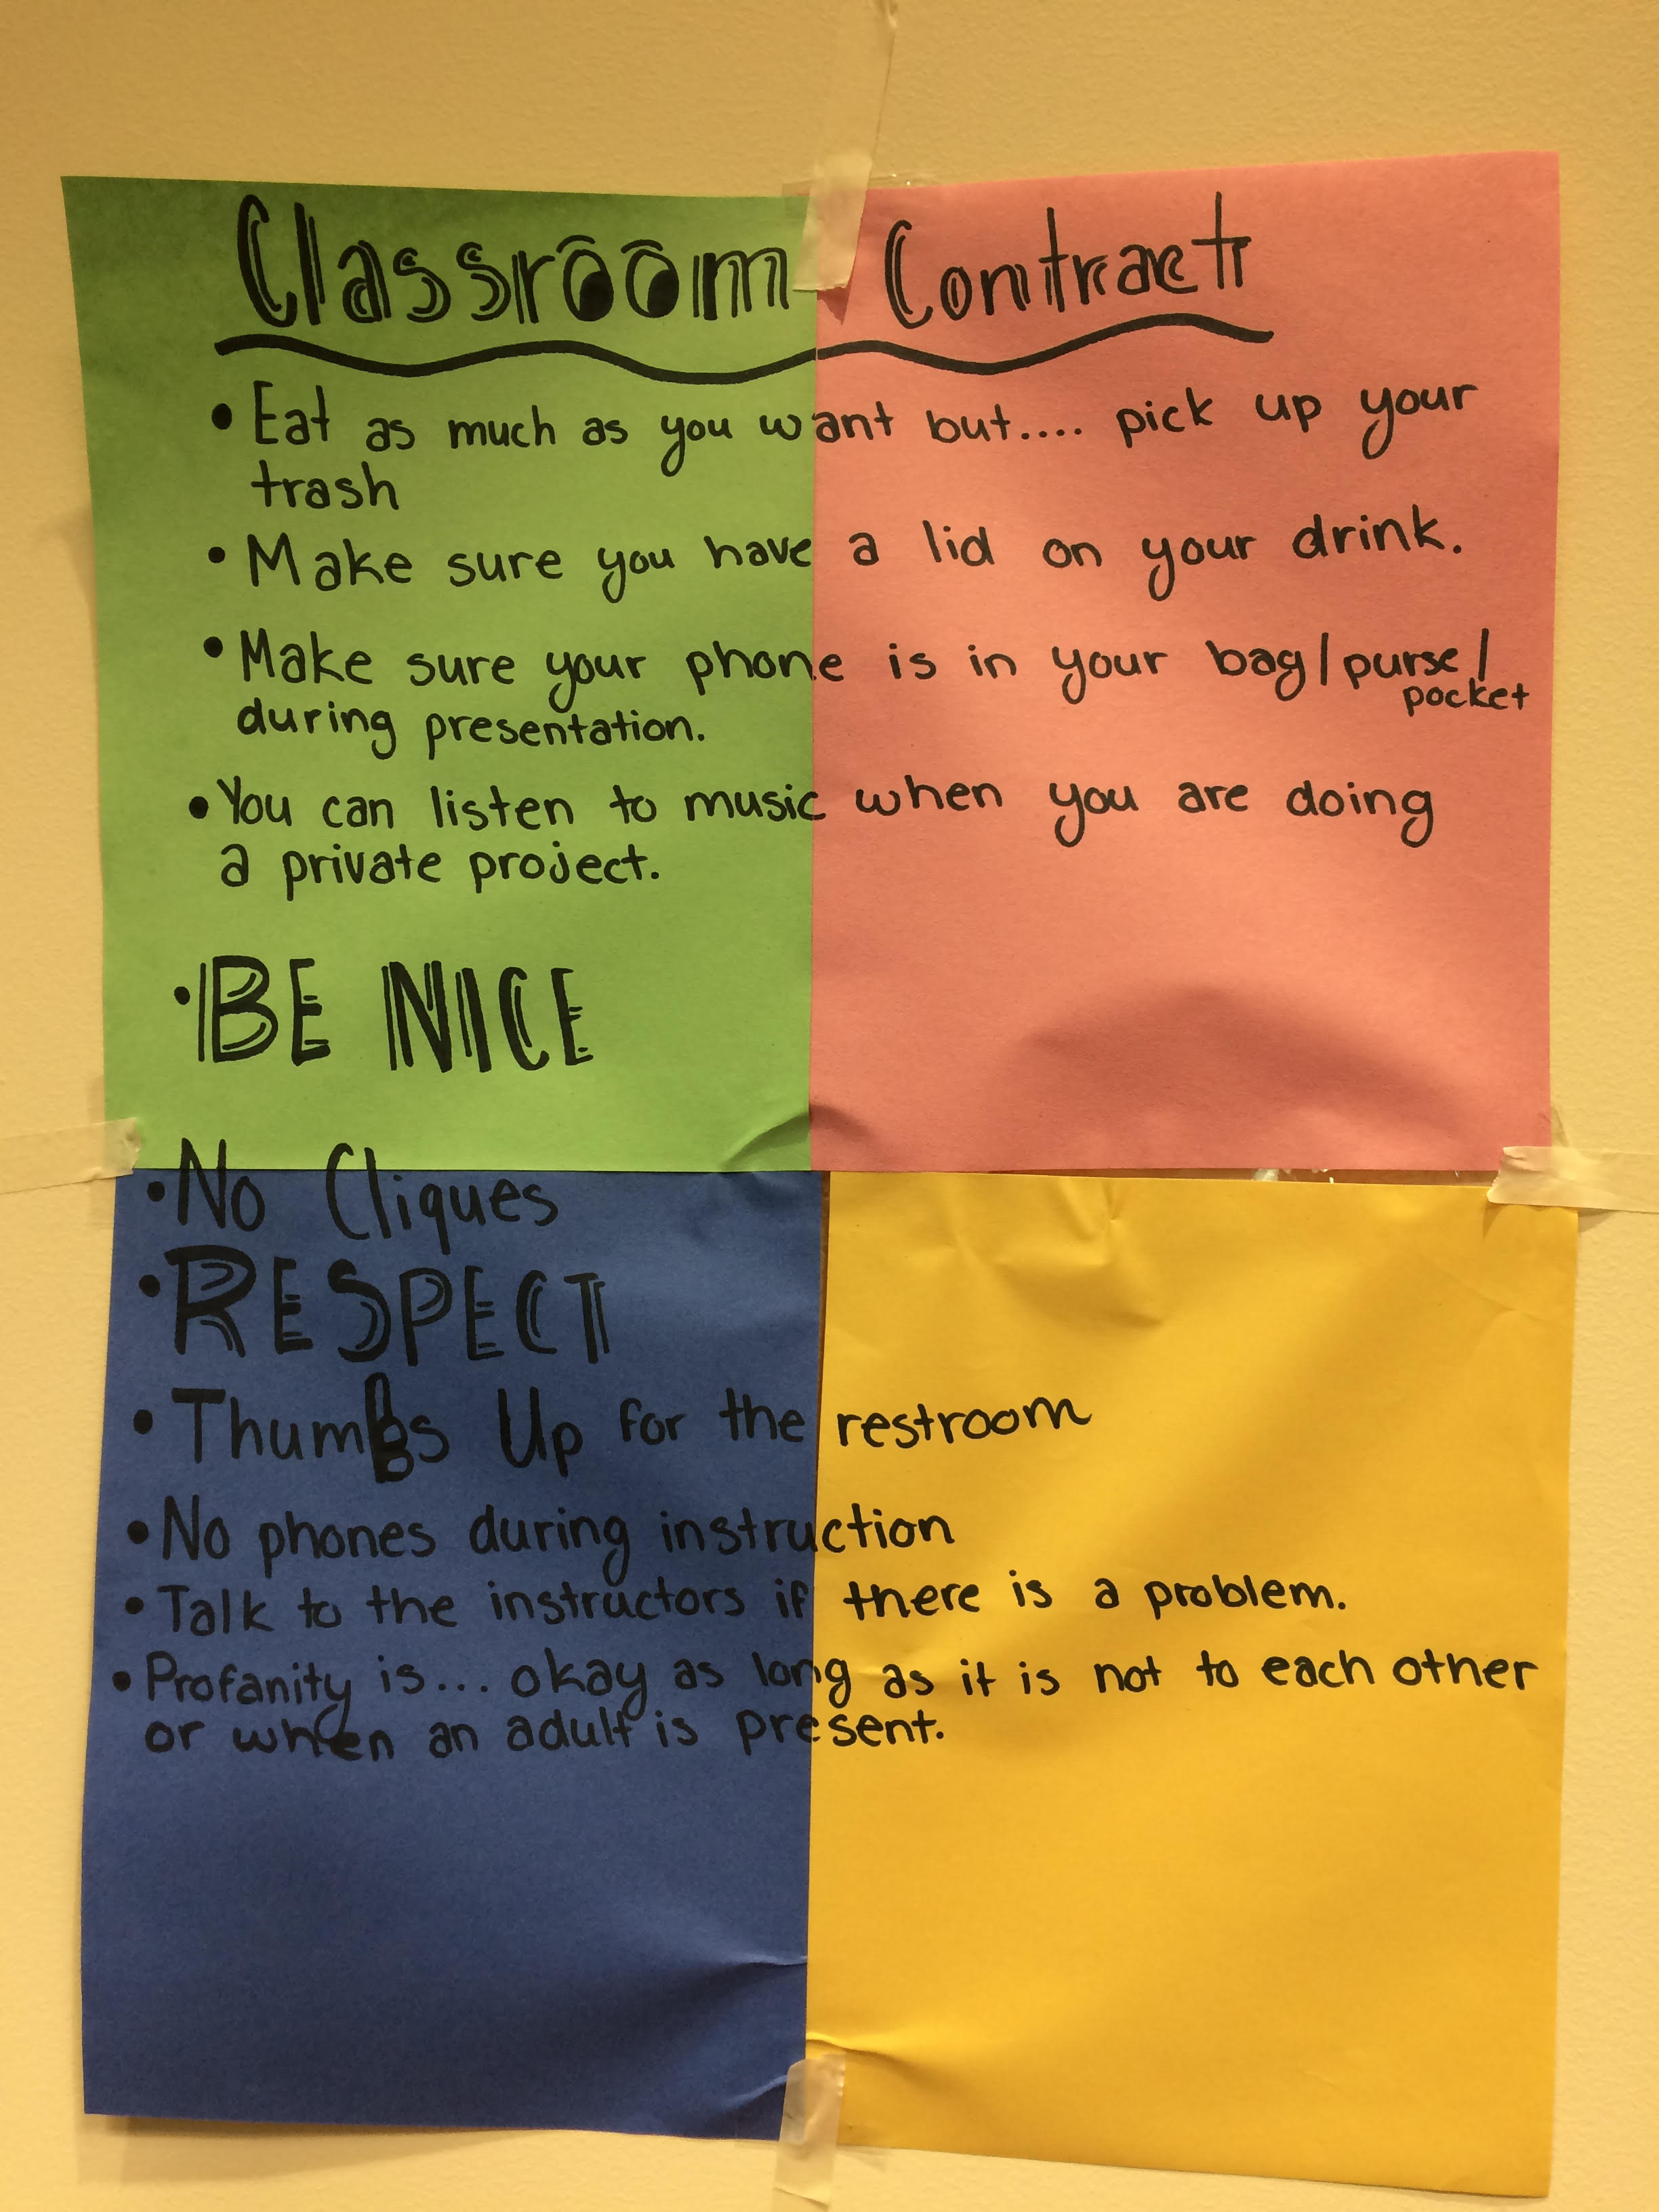 Classroom Contract
• Eat as much as you want but.... pick up your
trash
• Make sure you have a lid on your drink.
• Make sure your phone is in your bag/purse/
pocket
during presentation.
• You can listen to music when you are doing
a private project.
• BE NICE
• No Cliques
• RESPECT
• Thumbs Up for the restroom
• No phones during instruction
• Talk to the instructors if there is a problem.
• Profanity is... okay as long as it is not to each other
or when an adult is present.